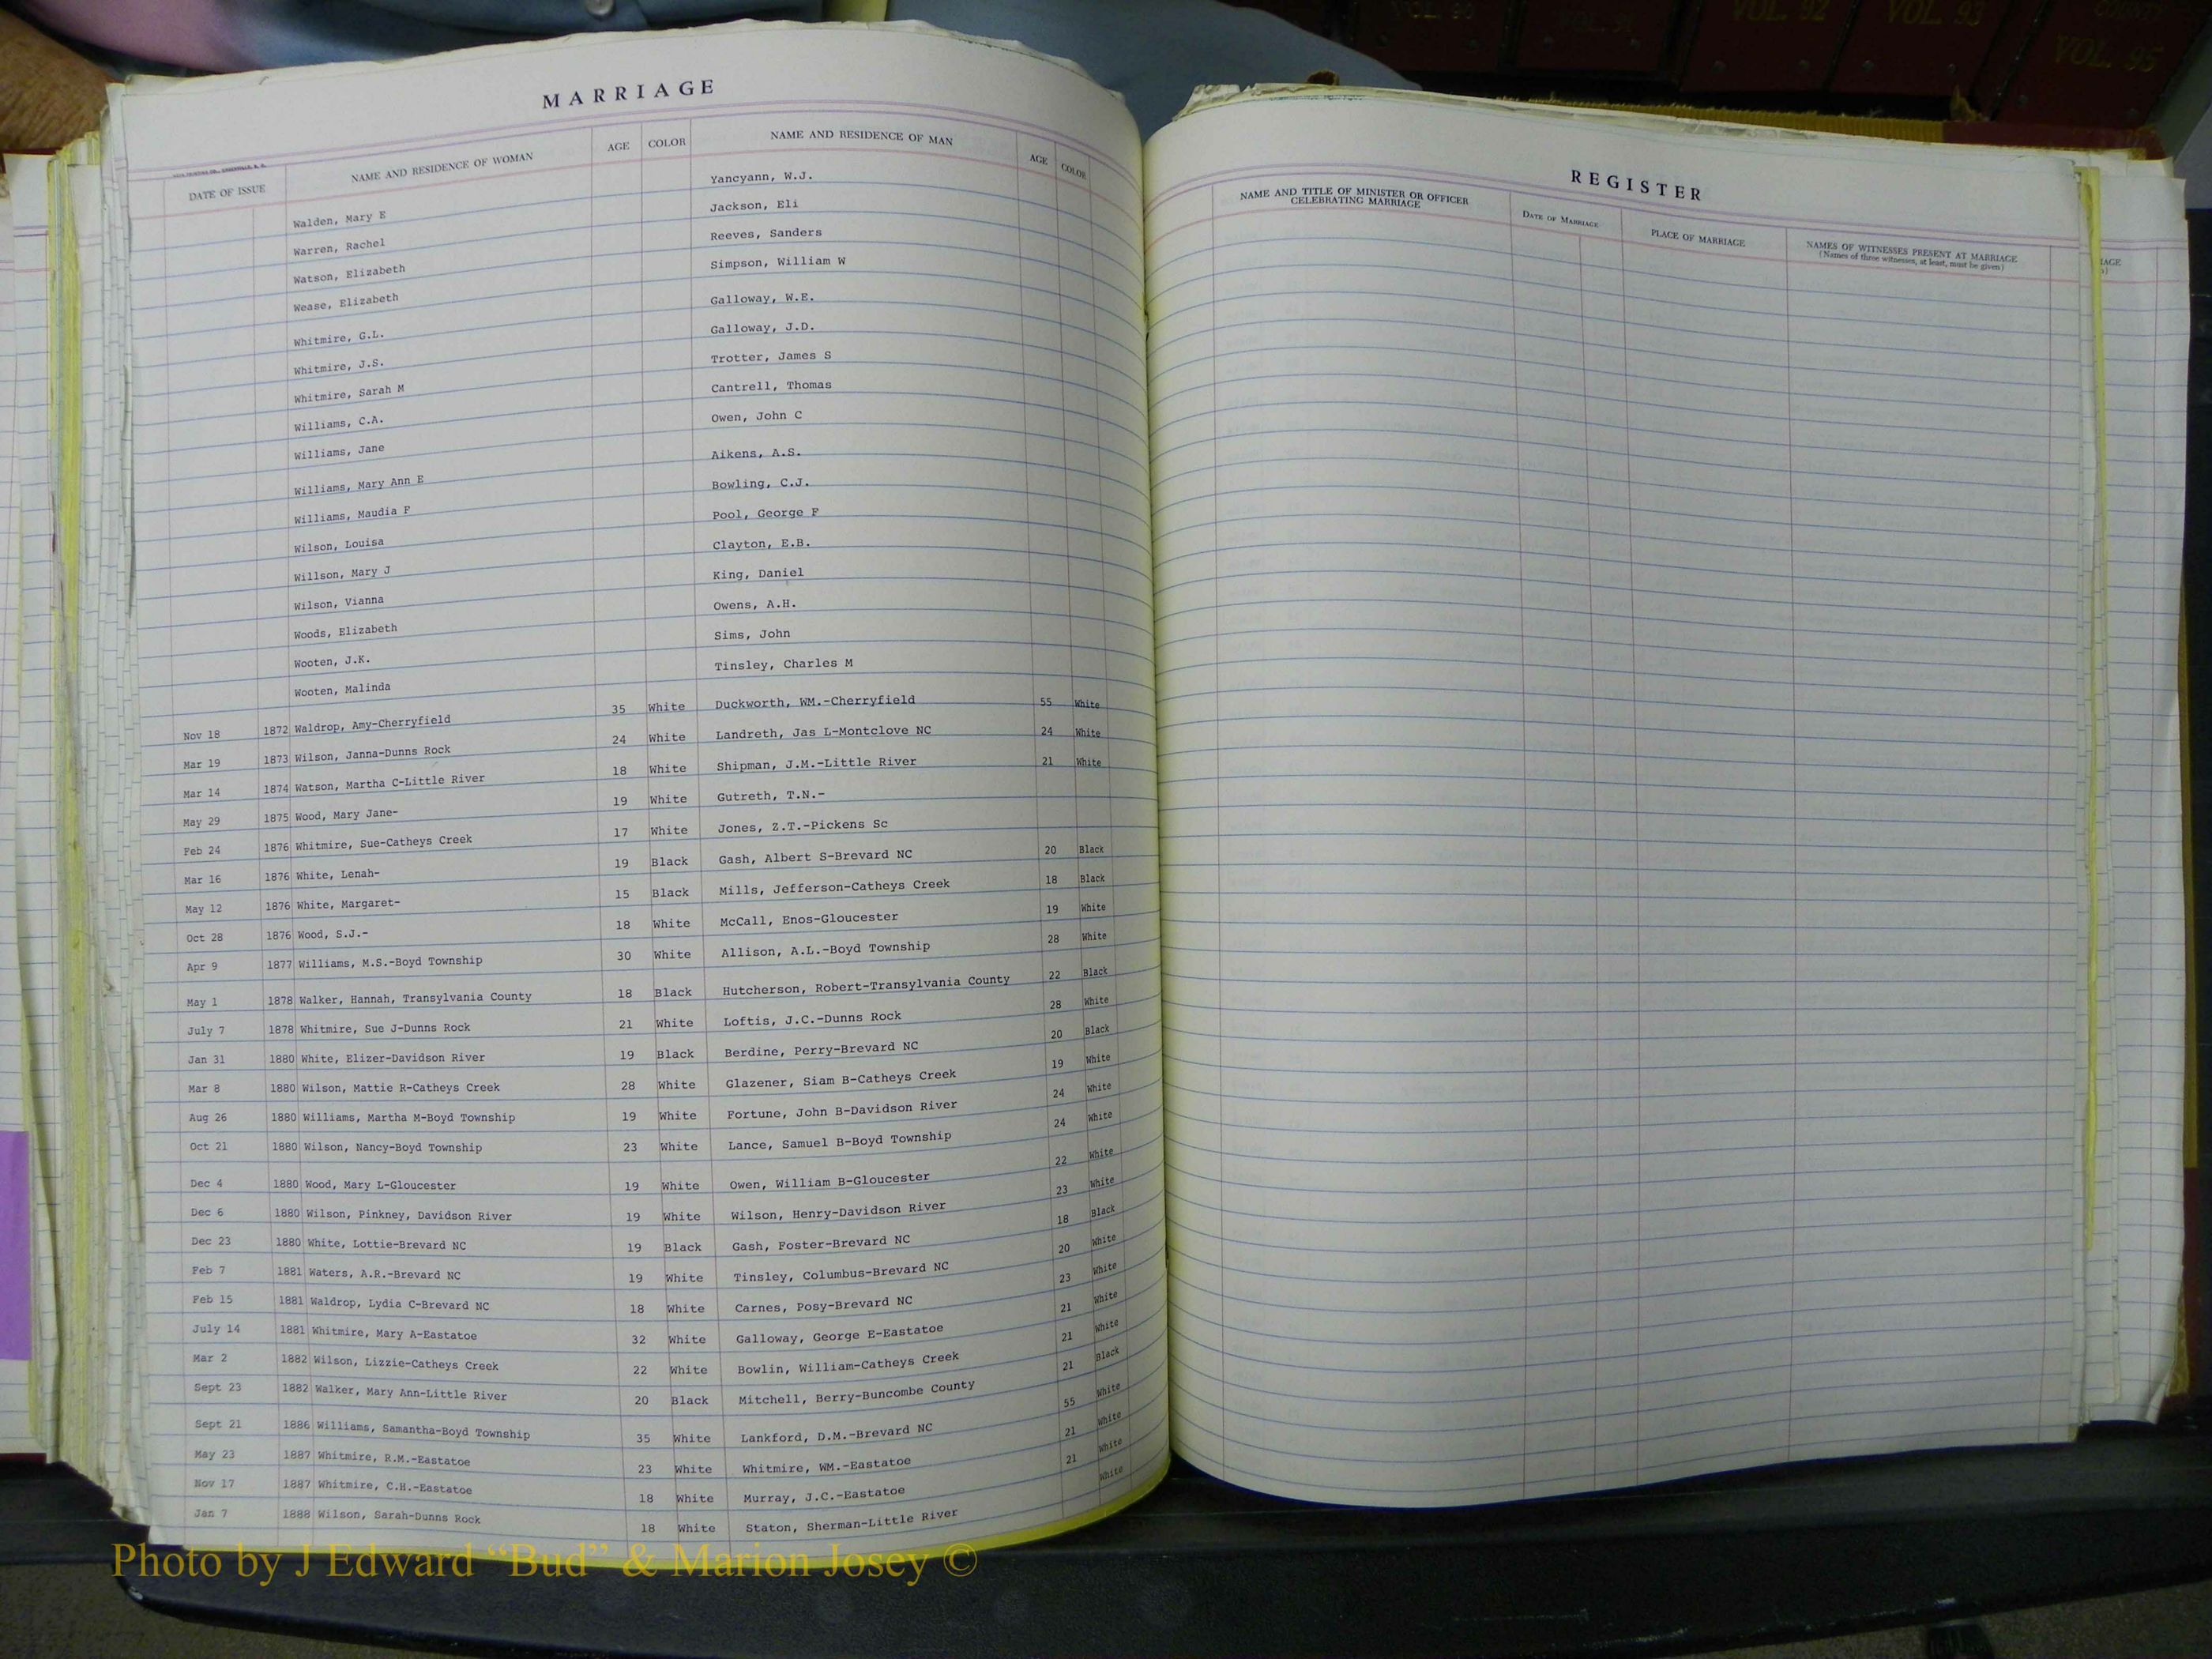 VOL. 90 VOL. 91 VOL. 92 VOL. 93 COUNTY VOL. 95
MARRIAGE
DATE OF ISSUE NAME AND RESIDENCE OF WOMAN AGE COLOR NAME AND RESIDENCE OF MAN AGE COLOR
Walden, Mary E Yancyann, W.J.
Warren, Rachel Jackson, Eli
Watson, Elizabeth Reeves, Sanders
Wease, Elizabeth Simpson, William W
Whitmire, G.L. Galloway, W.E.
Whitmire, J.S. Galloway, J.D.
Whitmire, Sarah M Trotter, James S
Williams, C.A. Cantrell, Thomas
Williams, Jane Owen, John C
Williams, Mary Ann E Aikens, A.S.
Williams, Maudia F Bowling, C.J.
Wilson, Louisa Pool, George F
Willson, Mary J Clayton, E.B.
Wilson, Vianna King, Daniel
Woods, Elizabeth Owens, A.H.
Wooten, J.K. Sims, John
Wooten, Malinda Tinsley, Charles M
Nov 18 1872 Waldrop, Amy-Cherryfield 35 White Duckworth, WM.-Cherryfield 55 White
Mar 19 1873 Wilson, Janna-Dunns Rock 24 White Landreth, Jas L-Montclove NC 24 White
Mar 14 1874 Watson, Martha C-Little River 18 White Shipman, J.M.-Little River 21 White
May 29 1875 Wood, Mary Jane- 19 White Gutreth, T.N.-
Feb 24 1876 Whitmire, Sue-Catheys Creek 17 White Jones, Z.T.-Pickens Sc
Mar 16 1876 White, Lenah- 19 Black Gash, Albert S-Brevard NC 20 Black
May 12 1876 White, Margaret- 15 Black Mills, Jefferson-Catheys Creek 18 Black
Oct 28 1876 Wood, S.J.- 18 White McCall, Enos-Gloucester 19 White
Apr 9 1877 Williams, M.S.-Boyd Township 30 White Allison, A.L.-Boyd Township 28 White
May 1 1878 Walker, Hannah, Transylvania County 18 Black Hutcherson, Robert-Transylvania County 22 Black
July 7 1878 Whitmire, Sue J-Dunns Rock 21 White Loftis, J.C.-Dunns Rock 28 White
Jan 31 1880 White, Elizer-Davidson River 19 Black Berdine, Perry-Brevard NC 20 Black
Mar 8 1880 Wilson, Mattie R-Catheys Creek 28 White Glazener, Siam B-Catheys Creek 19 White
Aug 26 1880 Williams, Martha M-Boyd Township 19 White Fortune, John B-Davidson River 24 White
Oct 21 1880 Wilson, Nancy-Boyd Township 23 White Lance, Samuel B-Boyd Township 24 White
Dec 4 1880 Wood, Mary L-Gloucester 19 White Owen, William B-Gloucester 22 White
Dec 6 1880 Wilson, Pinkney, Davidson River 19 White Wilson, Henry-Davidson River 23 White
Dec 23 1880 White, Lottie-Brevard NC 19 Black Gash, Foster-Brevard NC 18 Black
Feb 7 1881 Waters, A.R.-Brevard NC 19 White Tinsley, Columbus-Brevard NC 20 White
Feb 15 1881 Waldrop, Lydia C-Brevard NC 18 White Carnes, Posy-Brevard NC 23 White
July 14 1881 Whitmire, Mary A-Eastatoe 32 White Galloway, George E-Eastatoe 21 White
Mar 2 1882 Wilson, Lizzie-Catheys Creek 22 White Bowlin, William-Catheys Creek 21 White
Sept 23 1882 Walker, Mary Ann-Little River 20 Black Mitchell, Berry-Buncombe County 21 Black
Sept 21 1886 Williams, Samantha-Boyd Township 35 White Lankford, D.M.-Brevard NC 55 White
May 23 1887 Whitmire, R.M.-Eastatoe 23 White Whitmire, WM.-Eastatoe 21 White
Nov 17 1887 Whitmire, C.H.-Eastatoe 18 White Murray, J.C.-Eastatoe 21 White
Jan 7 1888 Wilson, Sarah-Dunns Rock 18 White Staton, Sherman-Little River White
REGISTER
NAME AND TITLE OF MINISTER OR OFFICER CELEBRATING MARRIAGE DATE OF MARRIAGE PLACE OF MARRIAGE NAMES OF WITNESSES PRESENT AT MARRIAGE
(Names of three witnesses, at least, must be given)
Photo by J Edward “Bud” & Marion Josey ©